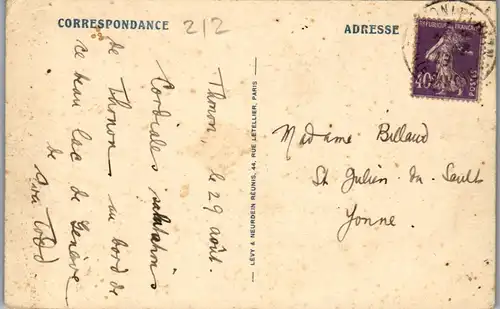 CORRESPONDANCE
212
ADRESSE
RÉPUBLIQUE FRANÇAISE
40c
POSTES
Thonon, le 29 août.
Cordiales salutations
de Thonon au bord de
ce beau lac de Genève
de
LÉVY & NEURDEIN RÉUNIS, 44, RUE LETELLIER, PARIS
Madame Billaud
St Julien du Sault
Yonne.